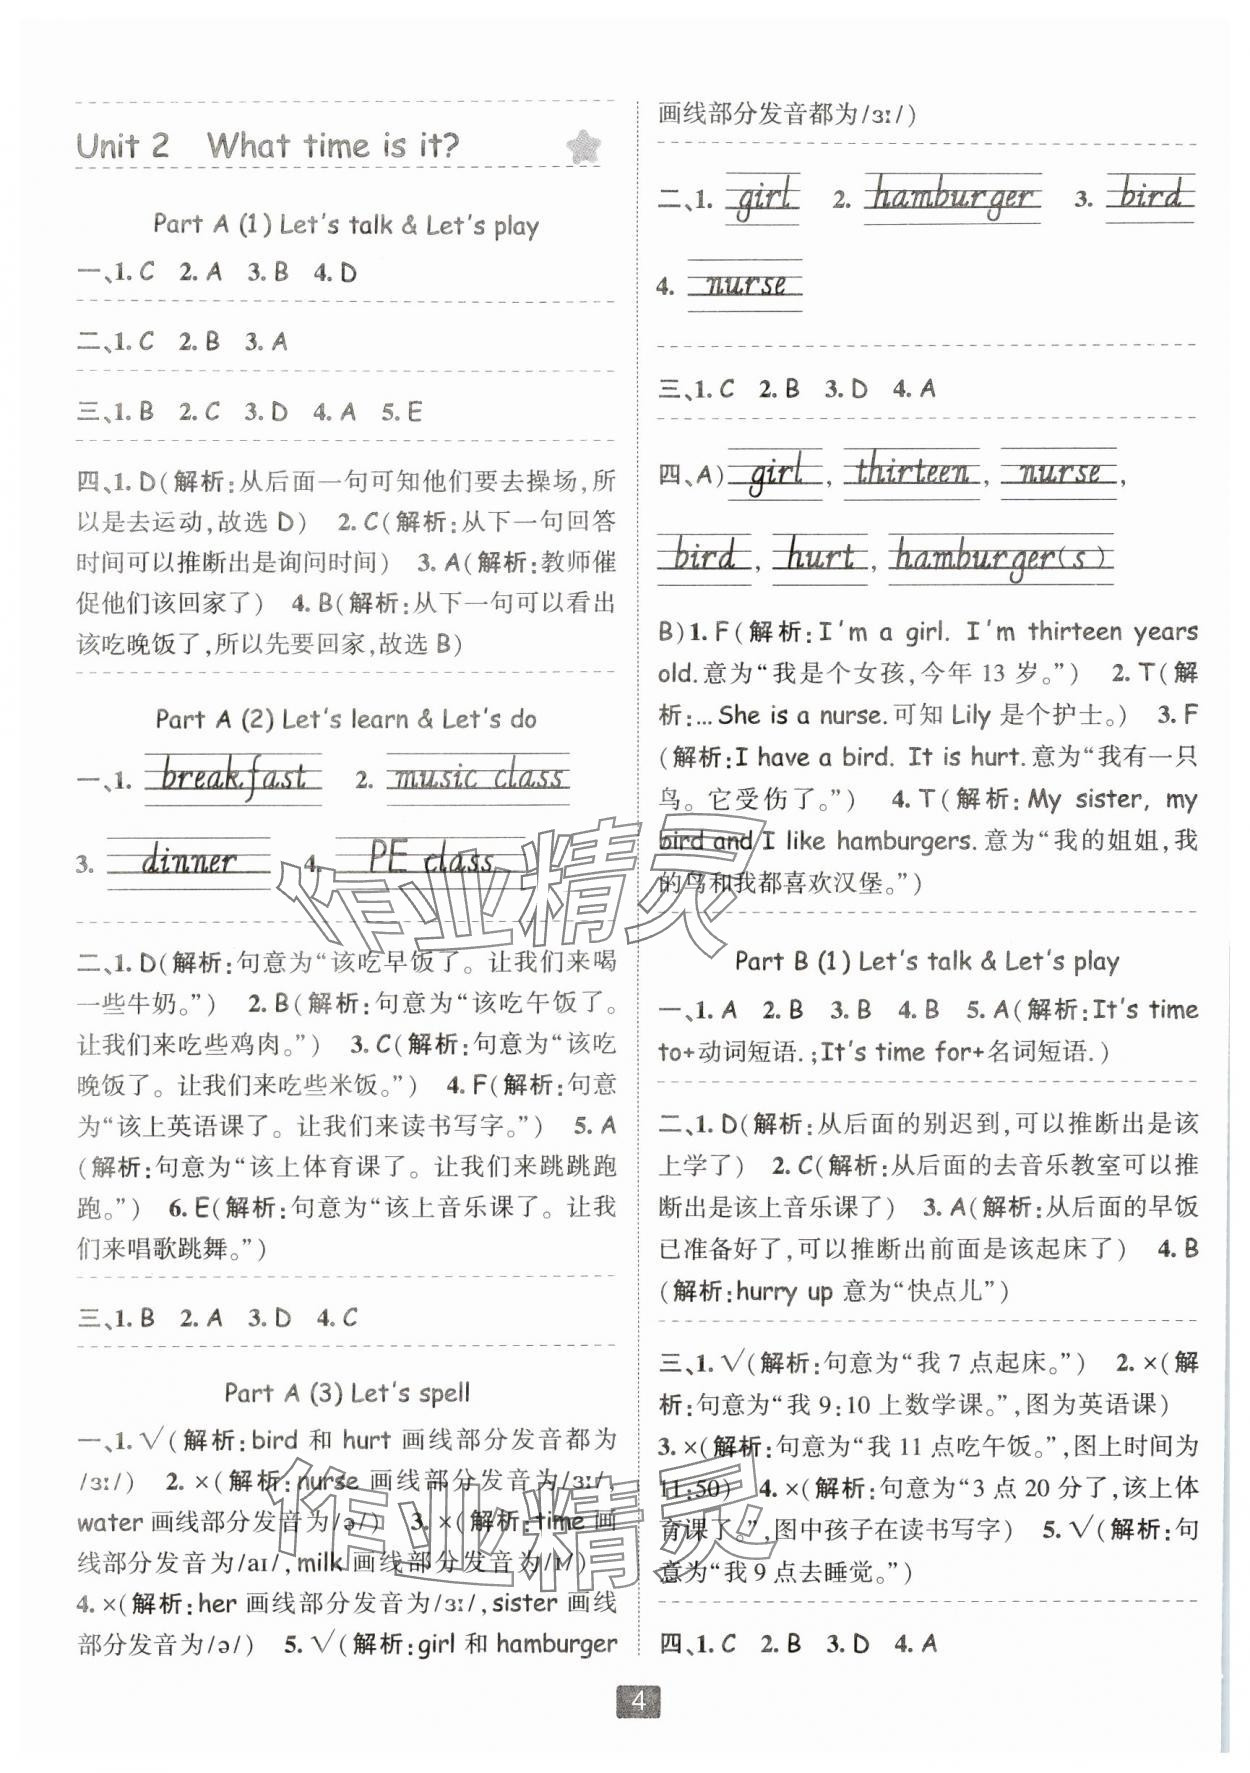 Unit 2 What time is it?
Part A (1) Let's talk & Let's play
一、1. C 2. A 3. B 4. D
二、1. C 2. B 3. A
三、1. B 2. C 3. D 4. A 5. E
四、1. D(解析:从后面一句可知他们要去操场,所
以是去运动,故选 D) 2. C(解析:从下一句回答
时间可以推断出是询问时间) 3. A(解析:教师催
促他们该回家了) 4. B(解析:从下一句可以看出
该吃晚饭了,所以先要回家,故选 B)
Part A (2) Let's learn & Let's do
一、1. breakfast 2. music class
3. dinner 4. PE class
二、1. D(解析:句意为“该吃早饭了。让我们来喝
一些牛奶。”) 2. B(解析:句意为“该吃午饭了。
让我们来吃些鸡肉。”) 3. C(解析:句意为“该吃
晚饭了。让我们来吃些米饭。”) 4. F(解析:句意
为“该上英语课了。让我们来读书写字。”) 5. A
(解析:句意为“该上体育课了。让我们来跳跳跑
跑。”) 6. E(解析:句意为“该上音乐课了。让我
们来唱歌跳舞。”)
三、1. B 2. A 3. D 4. C
Part A (3) Let's spell
一、1. √(解析:bird 和 hurt 画线部分发音都为
/ɜː/) 2. ×(解析:nurse 画线部分发音为/ɜː/,
water 画线部分发音为/ə/) 3. ×(解析:time 画
线部分发音为/aɪ/,milk 画线部分发音为/ɪ/)
4. ×(解析:her 画线部分发音为/ɜː/,sister 画线
部分发音为/ə/) 5. √(解析:girl 和 hamburger
画线部分发音都为/ɜː/)
二、1. girl 2. hamburger 3. bird
4. nurse
三、1. C 2. B 3. D 4. A
四、A) girl, thirteen, nurse,
bird, hurt, hamburger(s)
B)1. F(解析:I'm a girl. I'm thirteen years
old.意为“我是个女孩,今年 13 岁。”) 2. T(解
析:...She is a nurse.可知 Lily 是个护士。) 3. F
(解析:I have a bird. It is hurt.意为“我有一只
鸟。它受伤了。”) 4. T(解析:My sister, my
bird and I like hamburgers.意为“我的姐姐,我
的鸟和我都喜欢汉堡。”)
Part B (1) Let's talk & Let's play
一、1. A 2. B 3. B 4. B 5. A(解析:It's time
to+动词短语.;It's time for+名词短语.)
二、1. D(解析:从后面的别迟到,可以推断出是该
上学了) 2. C(解析:从后面的去音乐教室可以推
断出是该上音乐课了) 3. A(解析:从后面的早饭
已准备好了,可以推断出前面是该起床了) 4. B
(解析:hurry up 意为“快点儿”)
三、1. √(解析:句意为“我 7 点起床。”) 2. ×(解
析:句意为“我 9:10 上数学课。”,图为英语课)
3. ×(解析:句意为“我 11 点吃午饭。”,图上时间为
11:50) 4. ×(解析:句意为“3 点 20 分了,该上体
育课了。”,图中孩子在读书写字) 5. √(解析:句
意为“我 9 点去睡觉。”)
四、1. C 2. B 3. D 4. A
4
作业精灵
作业精灵